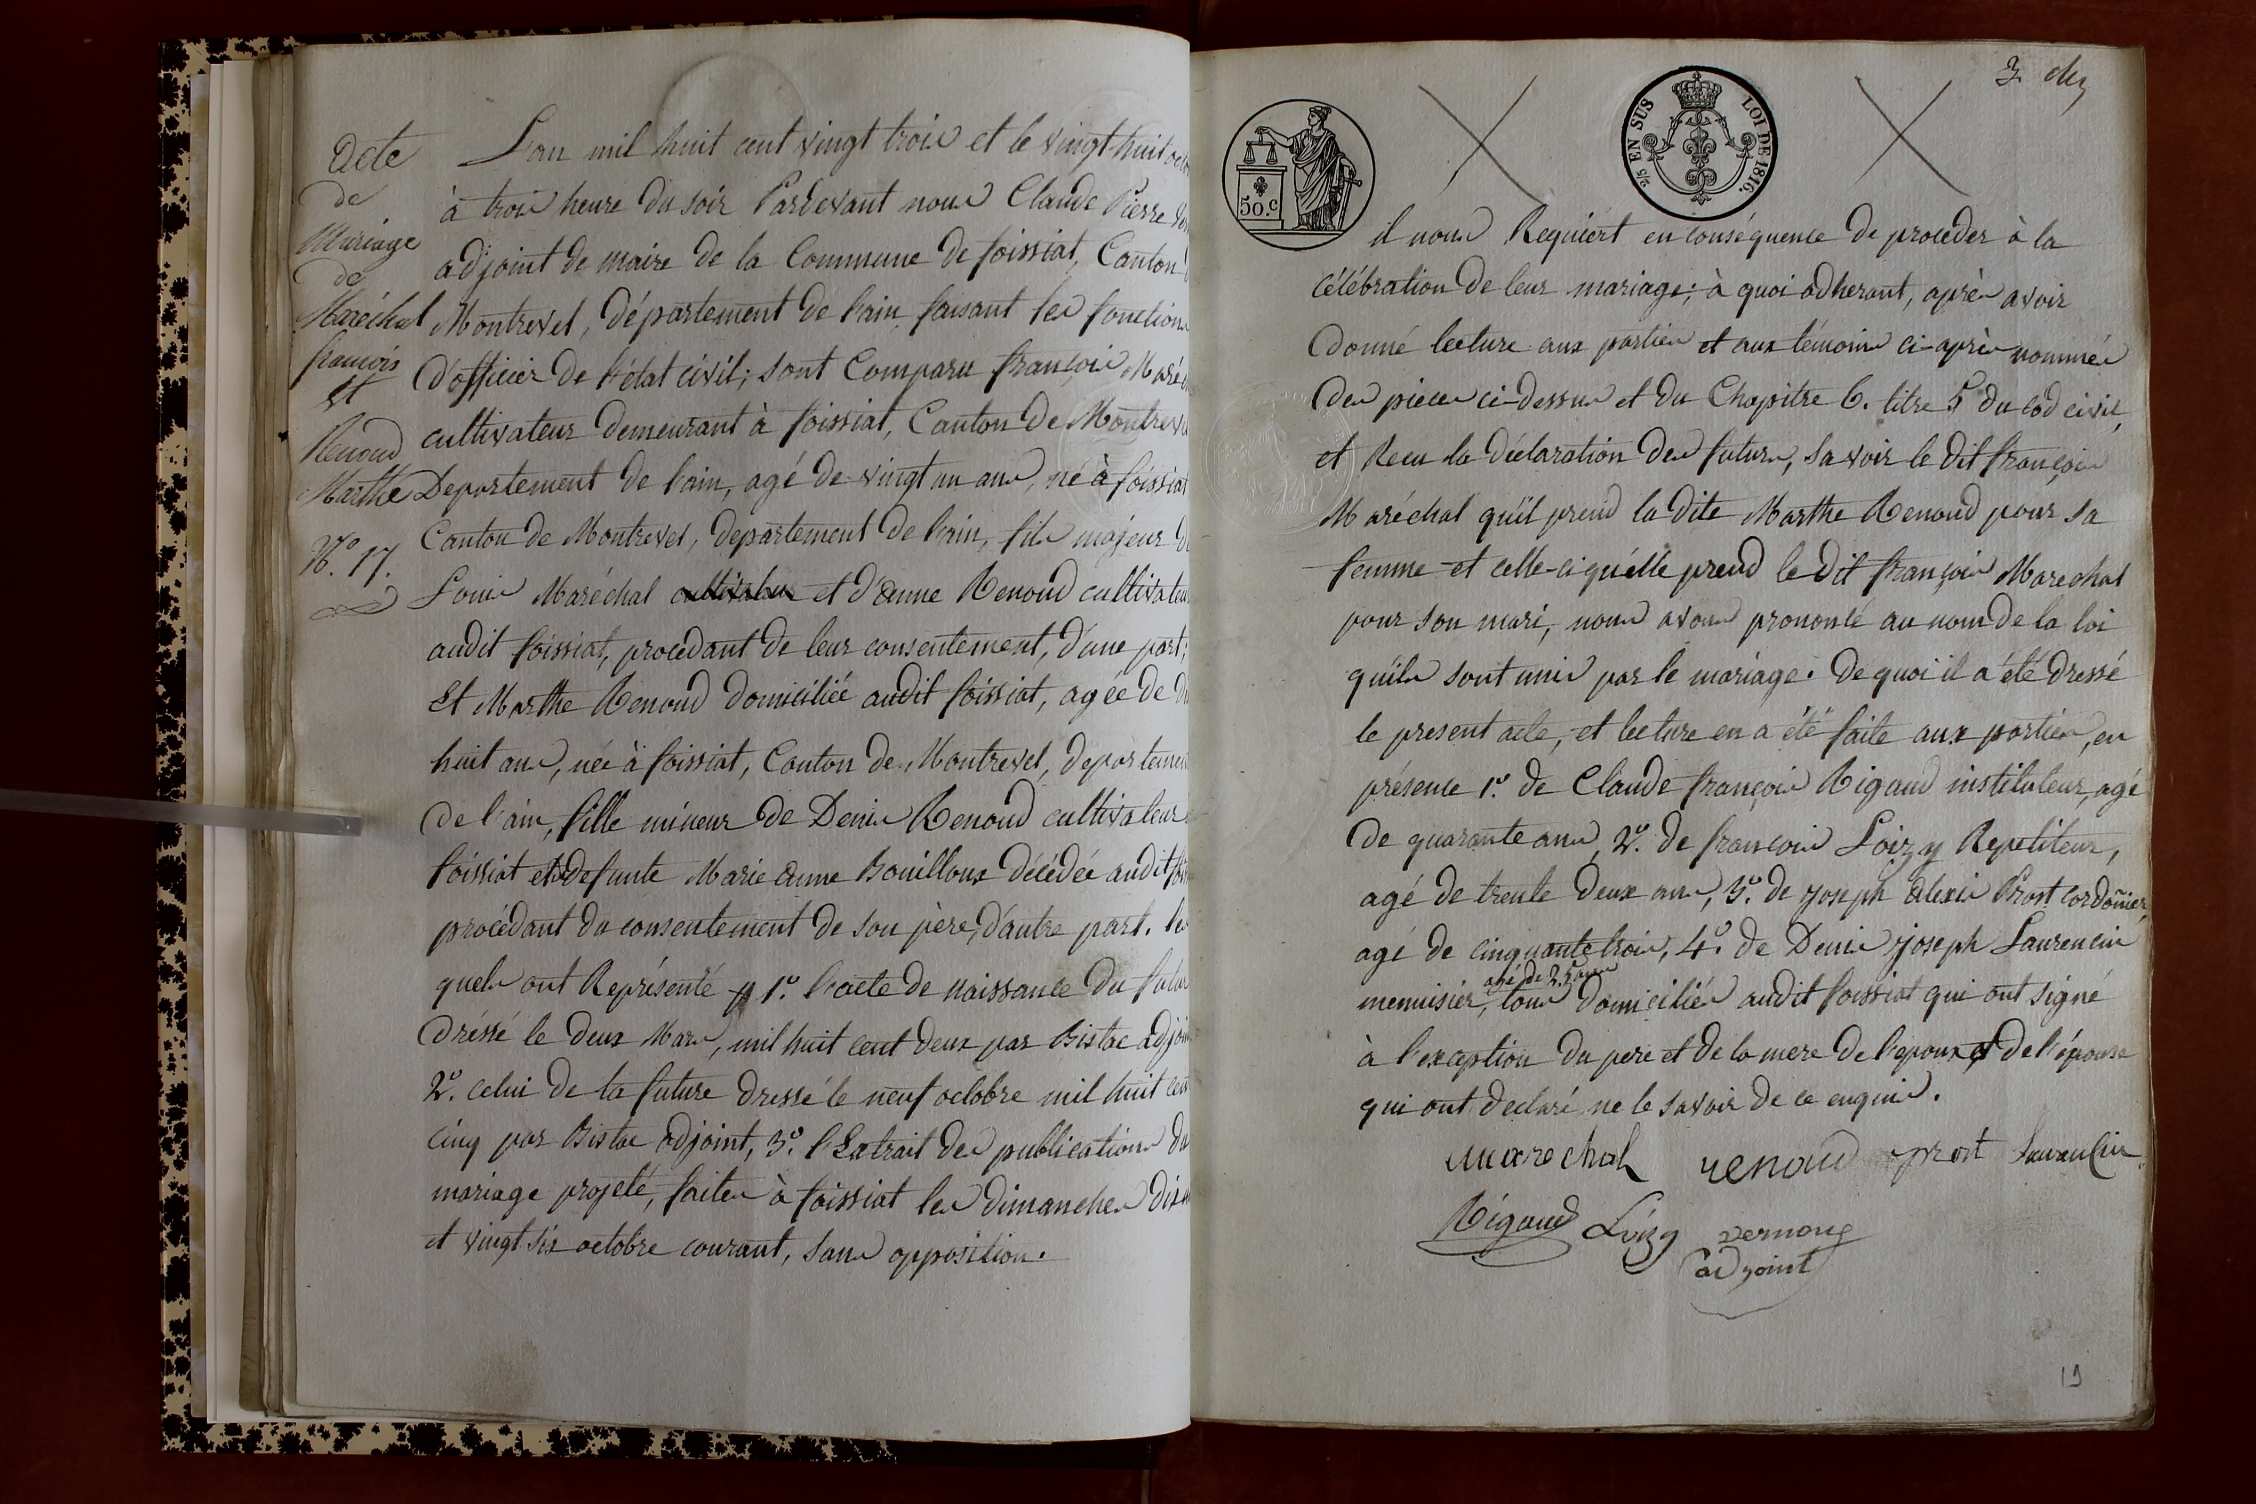 Acte
de
Mariage
de
Maréchal
françois
et
Renoud
Marthe
N.º 17.
L'an mil huit cent vingt trois et le vingt-huit
à trois heure du soir Pardevant nous Claude Pierre
adjoint de maire de la Commune de foissiat, Canton
Montrevel, département de l'ain, faisant les fonctions
d'officier de l'état civil; sont Comparu françois
cultivateur demeurant à foissiat, Canton de
Departement de l'ain, agé de vingt un ans, né à foissiat
Canton de Montrevel, departement de l'ain, fils majeur
Louis Maréchal cultivateur et d'anne Renoud
audit foissiat, procédant de leur consentement, d'une part;
Et Marthe Renoud domiciliée audit foissiat, agée de
huit ans, née à foissiat, Canton de Montrevel,
de l'ain, fille mineur de Denis Renoud cultivateur
foissiat et defunte Marie anne Bouilloux décédée audit
procédant du consentement de son père, d'autre part.
quels ont Représenté 1.º l'acte de naissance du
dréssé le deux Mars, mil huit cent deux par Bistac
2.º celui de la future dressé le neuf octobre mil huit
cinq par Bistac adjoint, 3.º l'Extrait des publications du
mariage projeté, faites à foissiat les dimanches
et vingt six octobre courant, sans opposition.
3
50.c
2/5 EN SUS
LOI DE 1816.
il nous Requiért en conséquence de procéder à la
célébration de leur mariage; à quoi adherant, après avoir
donné lecture aux parties et aux témoins ci-après nommés
des pieces ci-dessus et du Chapitre 6. titre 5 du cod civil,
et Recu la déclaration des futurs, savoir le dit françois
Maréchal qu'il prend la dite Marthe Renoud pour sa
femme et celle-ci qu'elle prend le dit françois Marechal
pour son mari, nous avons prononcé au nom de la loi
qu'ils sont unis par le mariage. de quoi il a été dressé
le present acte, et lecture en a été faite aux parties, en
présence 1.º de Claude françois Rigaud instituteur, agé
de quarante ans, 2.º de francois Loizy Repetiteur,
agé de trente deux ans, 3.º de joseph alexis Prost cordoñier,
agé de cinquante trois, 4.º de Denis joseph Laurencin
agé de 25 ans
menuisier, tous domiciliés audit foissiat qui ont signé
à l'exception du pere et de la mere de l'epoux et de l'épouse
qui ont declaré ne le savoir de ce enquis.
marechal renoud prost Laurencin
Rigaud Loizy vernoux
adjoint
19